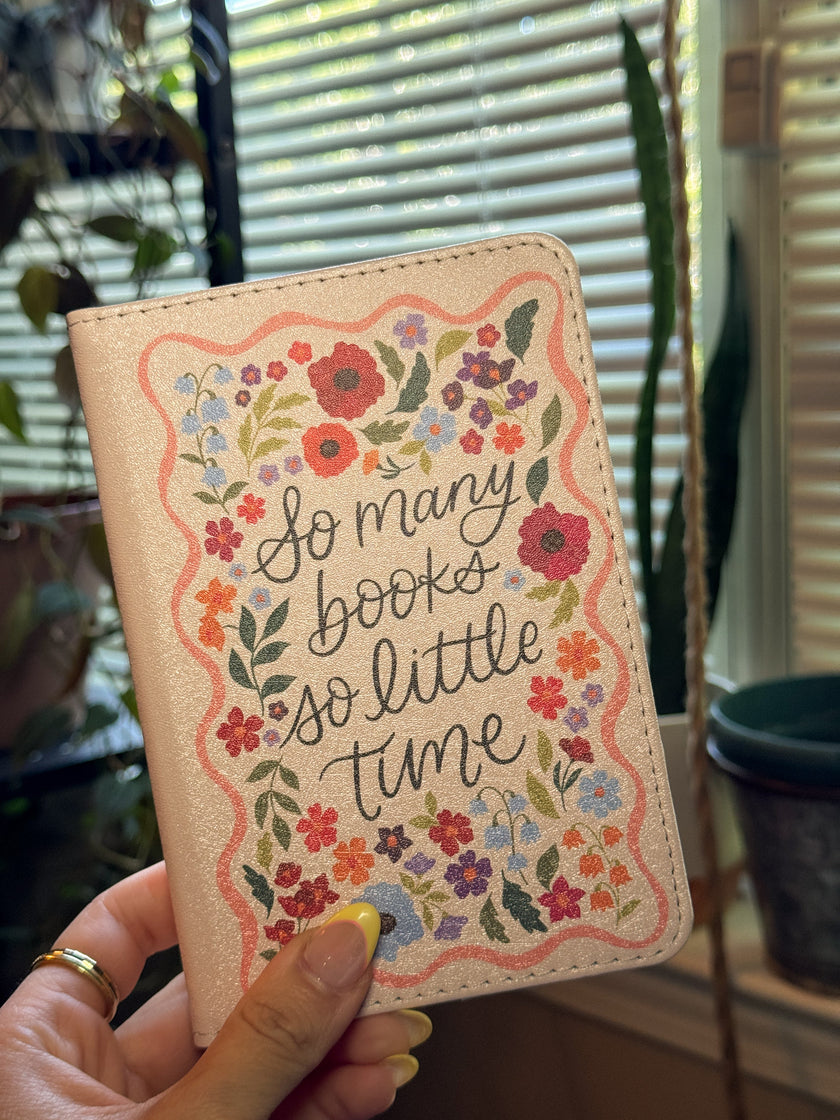 So many
books
so little
time